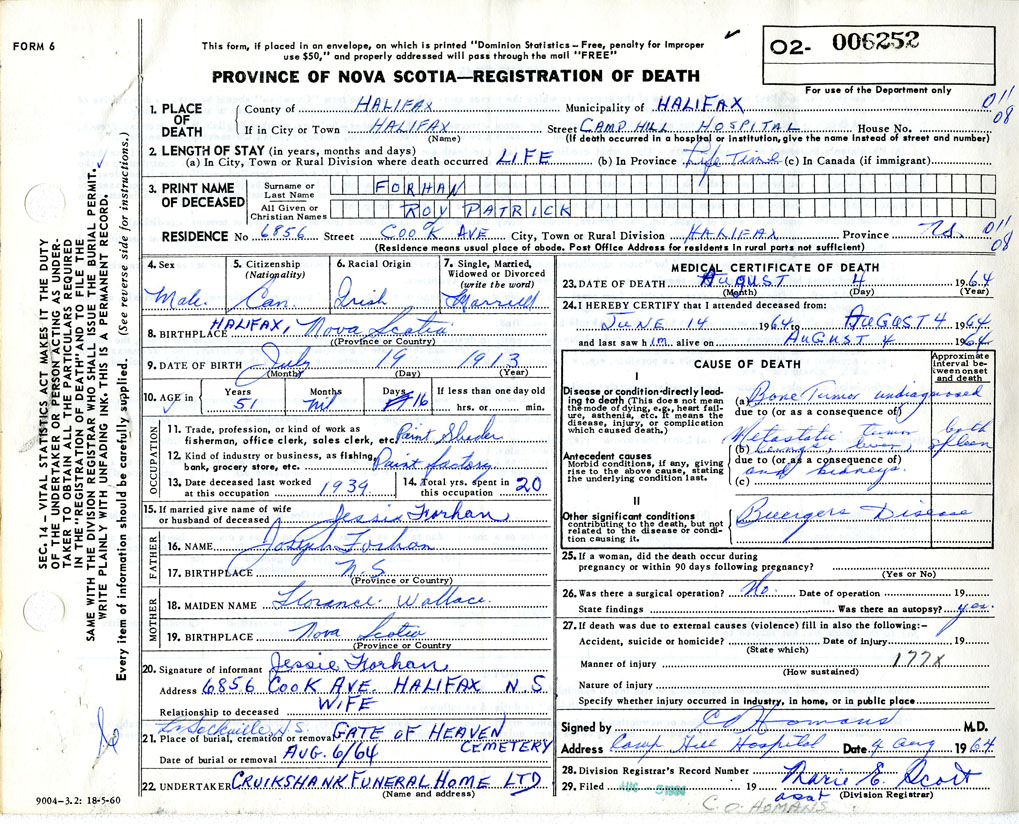 FORM 6
This form, if placed in an envelope, on which is printed "Dominion Statistics – Free, penalty for Improper
use $50," and properly addressed will pass through the mail "FREE"
PROVINCE OF NOVA SCOTIA—REGISTRATION OF DEATH
02- 006252
For use of the Department only
SEC. 14 – VITAL STATISTICS ACT MAKES IT THE DUTY
OF THE UNDERTAKER OR PERSON ACTING AS UNDER-
TAKER TO OBTAIN ALL THE PARTICULARS REQUIRED
IN THE "REGISTRATION OF DEATH" AND TO FILE THE
SAME WITH THE DIVISION REGISTRAR WHO SHALL ISSUE THE BURIAL PERMIT.
WRITE PLAINLY WITH UNFADING INK. THIS IS A PERMANENT RECORD.
Every item of information should be carefully supplied. (See reverse side for instructions.)
1. PLACE OF DEATH
County of HALIFAX Municipality of HALIFAX 011
If in City or Town HALIFAX Street CAMP HILL HOSPITAL House No. 08
(Name) (If death occurred in a hospital or institution, give the name instead of street and number)
2. LENGTH OF STAY (in years, months and days)
(a) In City, Town or Rural Division where death occurred LIFE (b) In Province Life Time (c) In Canada (if immigrant)
3. PRINT NAME OF DECEASED
Surname or Last Name FORHAN
All Given or Christian Names ROY PATRICK
RESIDENCE No 6856 Street COOK AVE. City, Town or Rural Division HALIFAX Province N.S. 011
08
(Residence means usual place of abode. Post Office Address for residents in rural parts not sufficient)
4. Sex Male.
5. Citizenship (Nationality) Can.
6. Racial Origin Irish
7. Single, Married, Widowed or Divorced (write the word) Married
8. BIRTHPLACE HALIFAX, Nova Scotia
(Province or Country)
9. DATE OF BIRTH July 19 1913
(Month) (Day) (Year)
10. AGE in Years 51 Months Nil Days 16 If less than one day old hrs. or min.
OCCUPATION
11. Trade, profession, or kind of work as
fisherman, office clerk, sales clerk, etc. Paint
12. Kind of industry or business, as fishing,
bank, grocery store, etc. Paint factory
13. Date deceased last worked
at this occupation 1939
14. Total yrs. spent in
this occupation 20
15. If married give name of wife
or husband of deceased Jessie Forhan
FATHER
16. NAME Joseph Forhan
17. BIRTHPLACE N.S.
(Province or Country)
MOTHER
18. MAIDEN NAME Florance Wallace
19. BIRTHPLACE Nova Scotia
(Province or Country)
20. Signature of informant Jessie Forhan
Address 6856 COOK AVE. HALIFAX N.S.
Relationship to deceased WIFE
Sackville, N.S.
21. Place of burial, cremation or removal GATE OF HEAVEN
CEMETERY
Date of burial or removal AUG. 6/64
22. UNDERTAKER CRUIKSHANK FUNERAL HOME LTD
(Name and address)
9004-3.2: 18-5-60
MEDICAL CERTIFICATE OF DEATH
23. DATE OF DEATH AUGUST 4 1964
(Month) (Day) (Year)
24. I HEREBY CERTIFY that I attended deceased from:
JUNE 14 1964 to AUGUST 4 1964
and last saw him alive on AUGUST 4 1964
CAUSE OF DEATH
Approximate interval between onset and death
I
Disease or condition directly lead-
ing to death (This does not mean
the mode of dying, e.g., heart fail-
ure, asthenia, etc. It means the
disease, injury, or complication
which caused death.)
(a) Bone Tumor undiagnosed
due to (or as a consequence of)
Metastatic tumor both
(b) Lungs, liver spleen
due to (or as a consequence of)
and kidneys.
(c)
Antecedent causes
Morbid conditions, if any, giving
rise to the above cause, stating
the underlying condition last.
II
Other significant conditions
contributing to the death, but not
related to the disease or condi-
tion causing it.
Buergers Disease
25. If a woman, did the death occur during
pregnancy or within 90 days following pregnancy?
(Yes or No)
26. Was there a surgical operation? No. Date of operation 19
State findings Was there an autopsy? yes.
27. If death was due to external causes (violence) fill in also the following:–
Accident, suicide or homicide? Date of injury 19
(State which)
Manner of injury 177X
(How sustained)
Nature of injury
Specify whether injury occurred in Industry, in home, or in public place
Signed by C O Homans M.D.
Address Camp Hill Hospital Date 4 Aug 1964
28. Division Registrar's Record Number
29. Filed AUG 5 1964 19 Marie E. Scott
asst (Division Registrar)
C.O. HOMANS